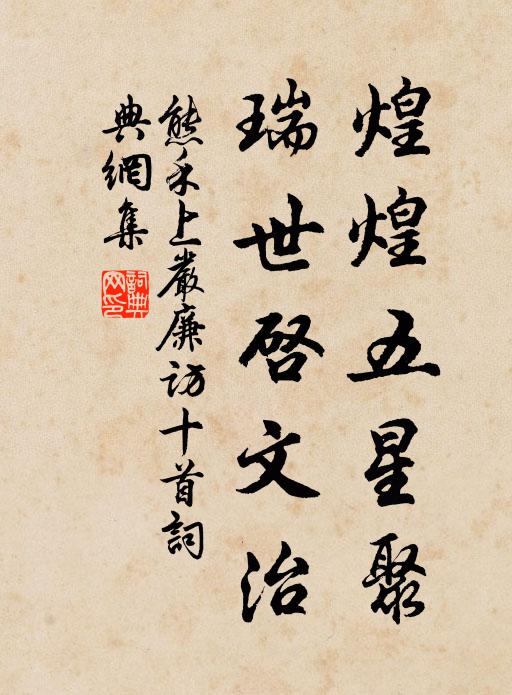 煌煌五星聚
瑞世啓文治
熊禾上嚴廉訪十首詞
典網集
詞典網印